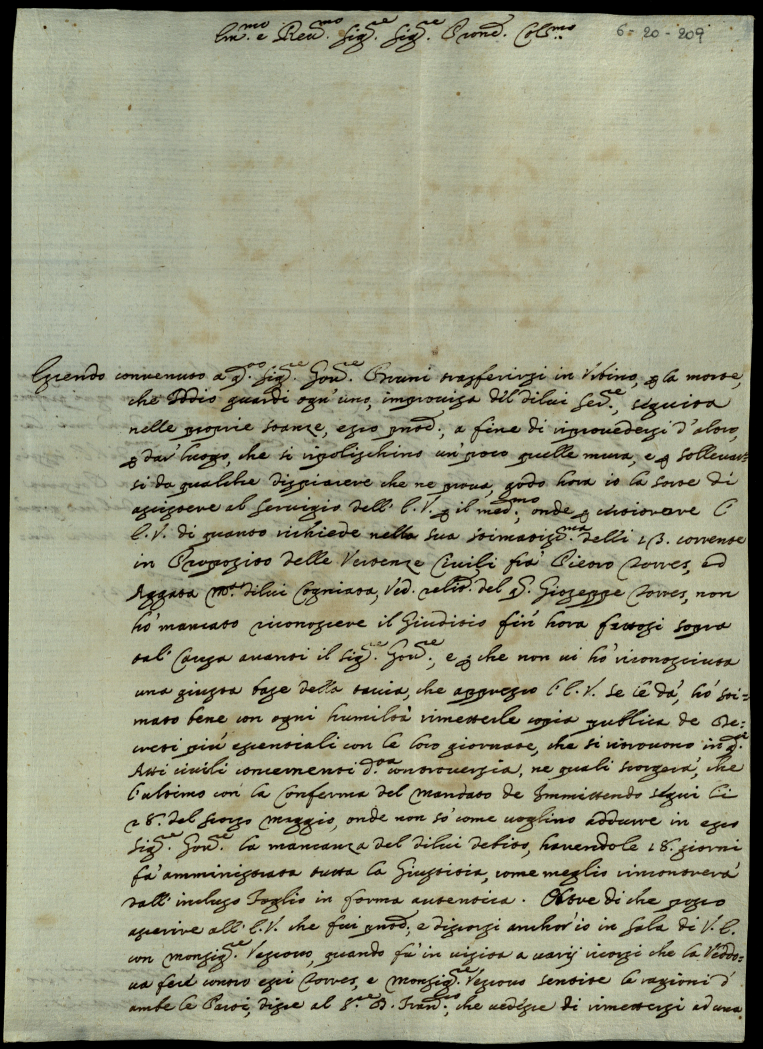 Em.mo e Reu.mo Sig.re Sig.re Pron.e Col.mo
6-20-209
Essendo conuenuto a q.sto Sig.re Gou.re Bruni trasferirsi in Vrbino, p la morte,
che Iddio guardi ogn'uno, improuisa del dilui Ser.re, seguita
nelle proprie stanze, esso pnte, a fine di riprouedersi d'altro,
p dar luogo, che si ripolischino un poco quelle mura, e p solleuar-
si da qualche dispiacere che ne proua, godo hora io la sorte di
assistere al seruigio dell'E.V. p il med.mo, onde p
E.V. di quanto richiede nella sua stimatiss.ma delli 13. corrente
in Proposito delle Vertenze Ciuili fra Pietro Torres, ed
Aggata M.a dilui Cogniata, Ved. relitt. del q. Gioseppe Torres, non
hò mancato riconoscere il Giuditio fin' hora fattosi sopra
tal' Causa auanti il Sig.re Gou.re, e p che non ui hò riconosciuta
una giusta base della taccia, che appresso l'E.V. se le dà, hò sti=
mato bene con ogni humiltà rimetterle copia publica de De=
creti più essentiali con le loro giornate, che si ritrouono in q.
Atti ciuili concernenti d.ta controuersia, ne quali scorgerà, che
l'ultimo con la conferma del mandato de Immittendo seguì li
28. del scorso Maggio, onde non sò come uoglino addurre in esso
Sig.re Gou.re la mancanza del dilui debito, hauendole 18. giorni
fà amministrata tutta la Giustitia, come meglio rincontrerà
dall' incluso Foglio in forma autentica. Oltre di che posso
asserire all'E.V. che fui pnte, e discorsi anchor'io in Sala di V.E.
con Monsig.re Vescouo, quando fù in uisita a uarij ricorsi che la Vedo=
ua fece contro essi Torres, e Monsig.re Vescouo sentite le ragioni d'
ambe le Parti, disse al S.re D. Fran.co, che uedesse di rimettersi ad una